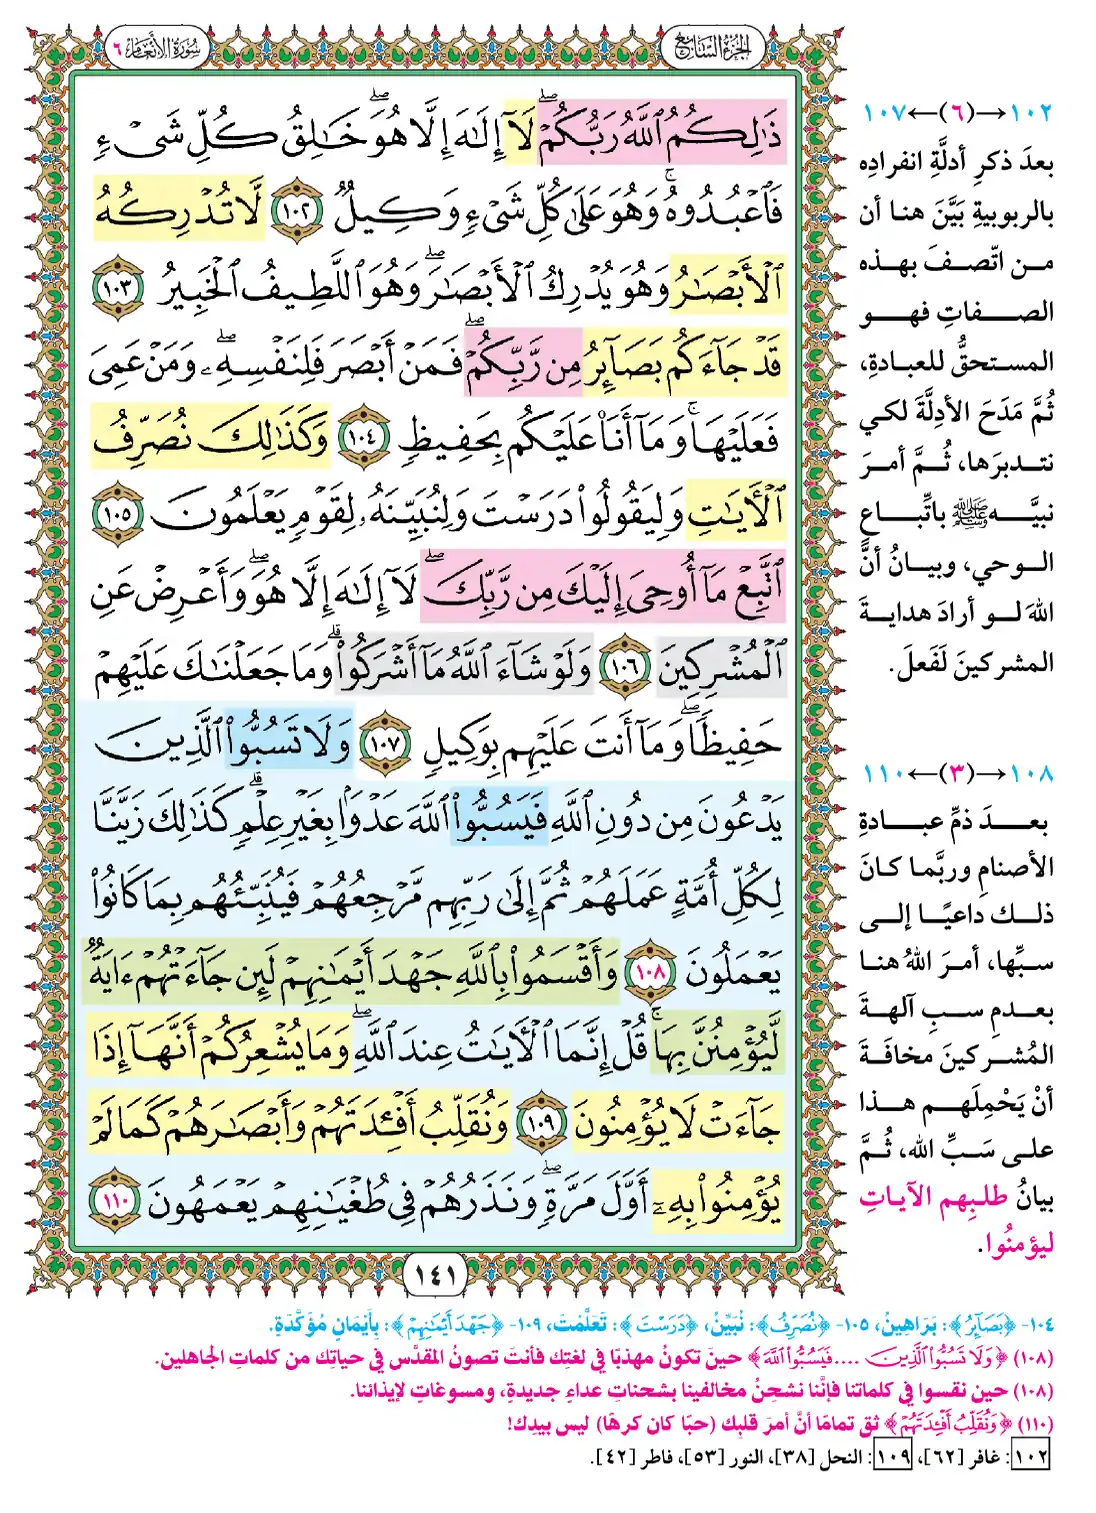 الجزء السابع
سورة الأنعام ٦
ذَٰلِكُمُ ٱللَّهُ رَبُّكُمْ ۖ لَآ إِلَٰهَ إِلَّا هُوَ ۖ خَٰلِقُ كُلِّ شَىْءٍ
فَٱعْبُدُوهُ ۚ وَهُوَ عَلَىٰ كُلِّ شَىْءٍ وَكِيلٌ ١٠٢ لَّا تُدْرِكُهُ
ٱلْأَبْصَٰرُ وَهُوَ يُدْرِكُ ٱلْأَبْصَٰرَ ۖ وَهُوَ ٱللَّطِيفُ ٱلْخَبِيرُ ١٠٣
قَدْ جَآءَكُم بَصَآئِرُ مِن رَّبِّكُمْ ۖ فَمَنْ أَبْصَرَ فَلِنَفْسِهِۦ ۖ وَمَنْ عَمِىَ
فَعَلَيْهَا ۚ وَمَآ أَنَا۠ عَلَيْكُم بِحَفِيظٍ ١٠٤ وَكَذَٰلِكَ نُصَرِّفُ
ٱلْءَايَٰتِ وَلِيَقُولُوا۟ دَرَسْتَ وَلِنُبَيِّنَهُۥ لِقَوْمٍ يَعْلَمُونَ ١٠٥
ٱتَّبِعْ مَآ أُوحِىَ إِلَيْكَ مِن رَّبِّكَ ۖ لَآ إِلَٰهَ إِلَّا هُوَ ۖ وَأَعْرِضْ عَنِ
ٱلْمُشْرِكِينَ ١٠٦ وَلَوْ شَآءَ ٱللَّهُ مَآ أَشْرَكُوا۟ ۗ وَمَا جَعَلْنَٰكَ عَلَيْهِمْ
حَفِيظًا ۖ وَمَآ أَنتَ عَلَيْهِم بِوَكِيلٍ ١٠٧ وَلَا تَسُبُّوا۟ ٱلَّذِينَ
يَدْعُونَ مِن دُونِ ٱللَّهِ فَيَسُبُّوا۟ ٱللَّهَ عَدْوًۢا بِغَيْرِ عِلْمٍ ۗ كَذَٰلِكَ زَيَّنَّا
لِكُلِّ أُمَّةٍ عَمَلَهُمْ ثُمَّ إِلَىٰ رَبِّهِم مَّرْجِعُهُمْ فَيُنَبِّئُهُم بِمَا كَانُوا۟
يَعْمَلُونَ ١٠٨ وَأَقْسَمُوا۟ بِٱللَّهِ جَهْدَ أَيْمَٰنِهِمْ لَئِن جَآءَتْهُمْ ءَايَةٌ
لَّيُؤْمِنُنَّ بِهَا ۚ قُلْ إِنَّمَا ٱلْءَايَٰتُ عِندَ ٱللَّهِ ۖ وَمَا يُشْعِرُكُمْ أَنَّهَآ إِذَا
جَآءَتْ لَا يُؤْمِنُونَ ١٠٩ وَنُقَلِّبُ أَفْـِٔدَتَهُمْ وَأَبْصَٰرَهُمْ كَمَا لَمْ
يُؤْمِنُوا۟ بِهِۦٓ أَوَّلَ مَرَّةٍ ۖ وَنَذَرُهُمْ فِى طُغْيَٰنِهِمْ يَعْمَهُونَ ١١٠
١٤١
١٠٢→(٦)←١٠٧
بعدَ ذكرِ أدلَّةِ انفرادِه
بالربوبيةِ بَيَّنَ هنا أن
من اتّصفَ بهذه
الصفاتِ فهو
المستحقُّ للعبادةِ،
ثُمَّ مَدَحَ الأدِلَّةَ لكي
نتدبرَها، ثُمَّ أمرَ
نبيَّه ﷺ باتِّباعِ
الوحي، وبيانُ أنَّ
اللهَ لو أرادَ هدايةَ
المشركينَ لَفَعلَ.
١٠٨→(٣)←١١٠
بعدَ ذمِّ عبادةِ
الأصنامِ وربَّما كانَ
ذلك داعيًا إلى
سبِّها، أمرَ اللهُ هنا
بعدمِ سبِ آلهةِ
المُشركينَ مخافَةَ
أنْ يَحْمِلَهم هذا
على سَبِّ الله، ثُمَّ
بيانُ طلبِهم الآياتِ
ليؤمنُوا.
١٠٤- ﴿بَصَآئِرُ﴾: بَرَاهِينُ، ١٠٥- ﴿نُصَرِّفُ﴾: نُبَيِّنُ، ﴿دَرَسْتَ﴾: تَعَلَّمْتَ، ١٠٩- ﴿جَهْدَ أَيْمَٰنِهِمْ﴾: بِأَيْمَانٍ مُؤَكَّدَةٍ.
(١٠٨) ﴿وَلَا تَسُبُّوا۟ ٱلَّذِينَ .... فَيَسُبُّوا۟ ٱللَّهَ﴾ حينَ تكونُ مهذبًا في لغتِك فأنتَ تصونُ المقدَّس في حياتِك من كلماتِ الجاهلين.
(١٠٨) حين نقسوا في كلماتنا فإنَّنا نشحِنُ مخالفينا بشحناتِ عداءٍ جديدةٍ، ومسوغاتٍ لإيذائنا.
(١١٠) ﴿وَنُقَلِّبُ أَفْـِٔدَتَهُمْ﴾ ثق تمامًا أنَّ أمرَ قلبِك (حبًا كان كرهًا) ليس بيدِك!
١٠٢: غافر [٦٢]، ١٠٩: النحل [٣٨]، النور [٥٣]، فاطر [٤٢].